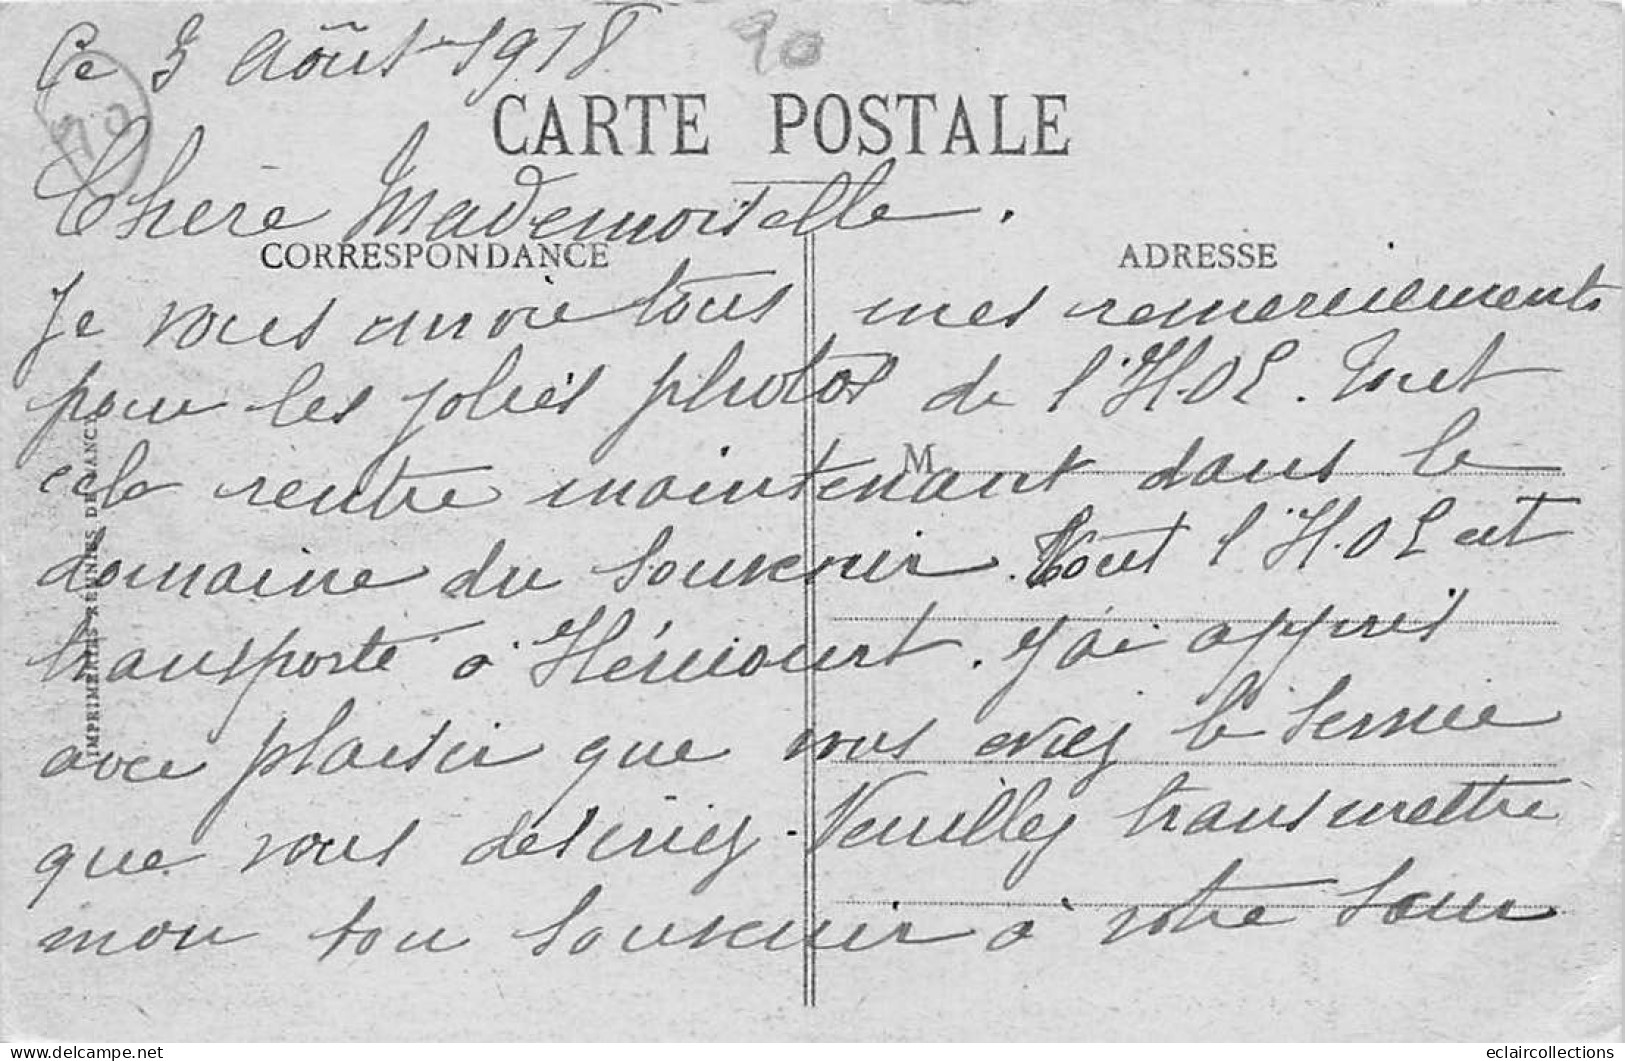 Ce 3 Août 1918
90
90
CARTE POSTALE
Chère Mademoiselle.
CORRESPONDANCE
ADRESSE
Je vous envoie tous mes remerciements
pour les jolies photos de l'H.O.E. Tout
cela rentre maintenant dans le
M
domaine du souvenir. Tout l'H.O E est
transporté à Héricourt. J'ai appris
avec plaisir que vous aviez le service
que vous désiriez. Veuillez transmettre
mon bon souvenir à votre soeur
IMPRIMERIES REUNIES DE NANCY
eclaircollections